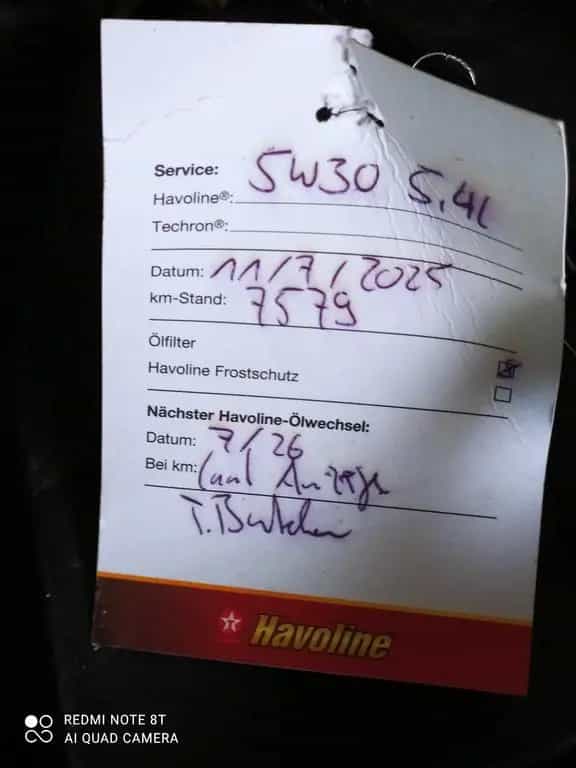 Service: 5W30 5,4L
Havoline®:
Techron®:
Datum: 11/7/2025
km-Stand: 7579
Ölfilter
Havoline Frostschutz
Nächster Havoline-Ölwechsel:
Datum: 7/26
Bei km: laut Anzeige
Havoline
REDMI NOTE 8T
AI QUAD CAMERA